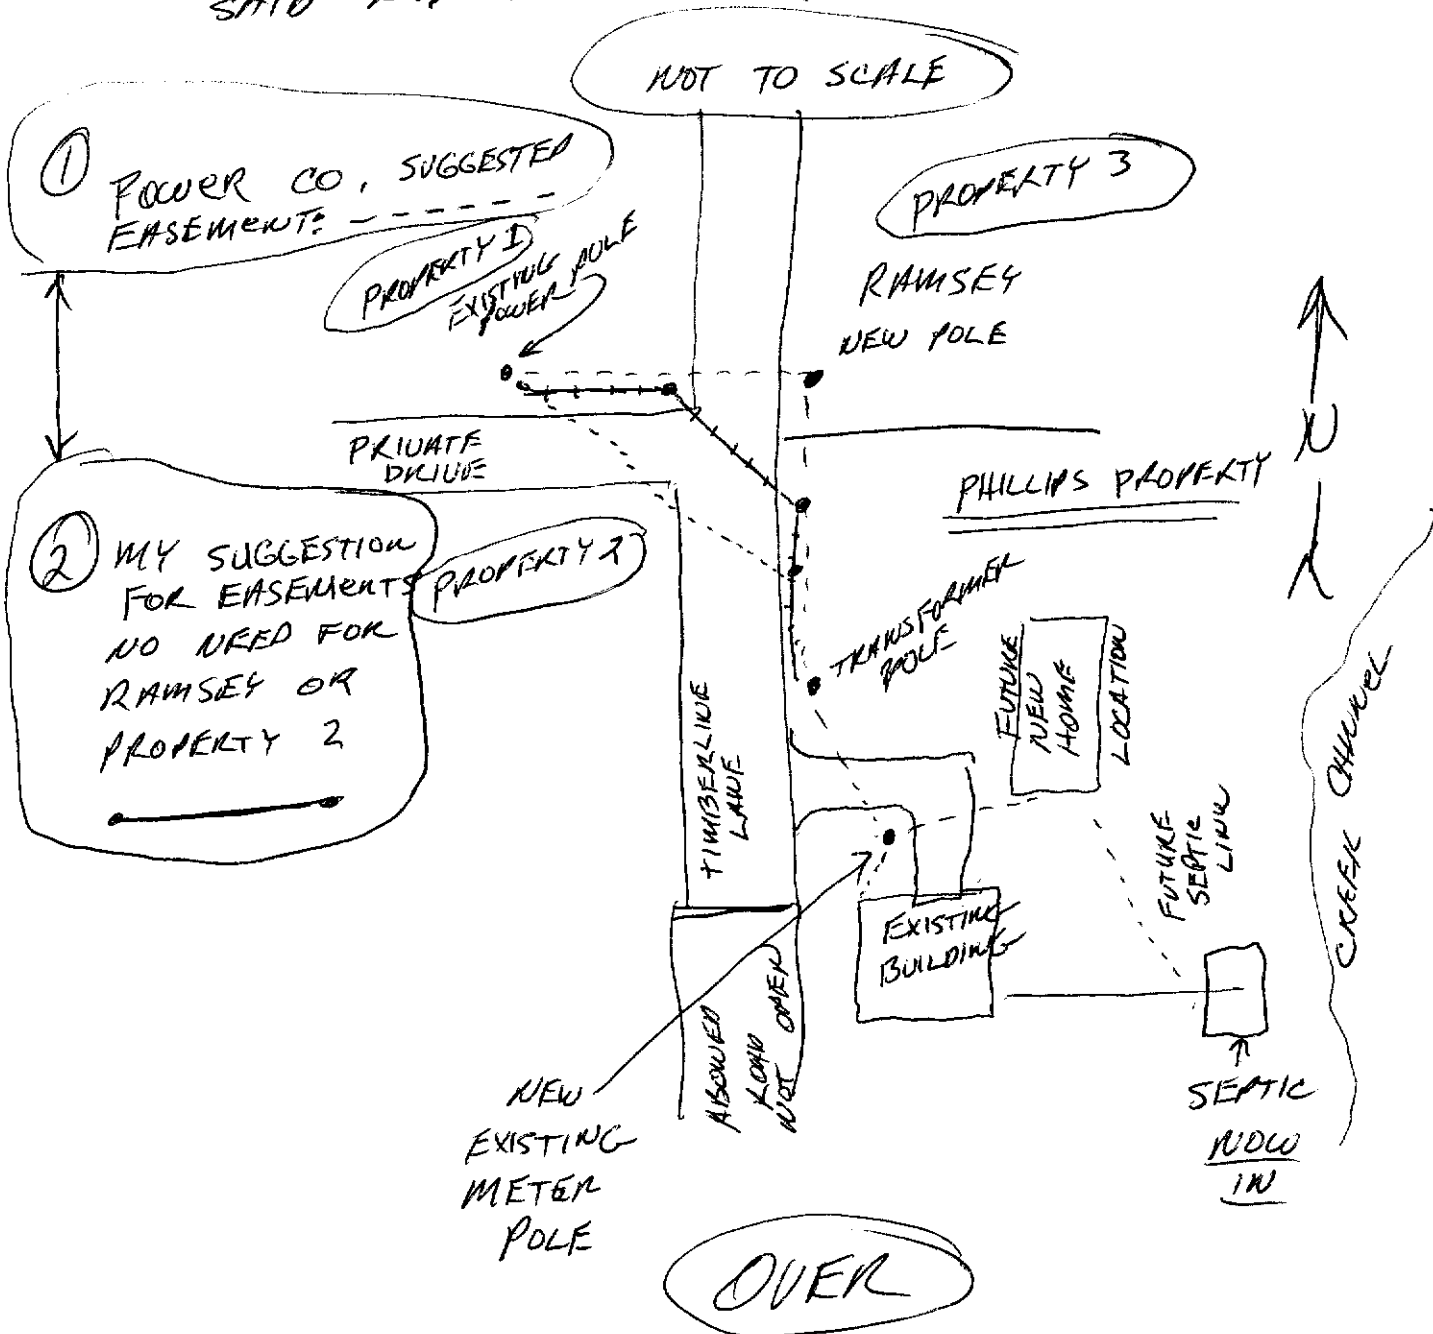 SAID
NOT TO SCALE
① POWER CO. SUGGESTED
EASEMENT:
PROPERTY 1
EXISTING
POWER POLE
PROPERTY 3
RAMSEY
NEW POLE
N
PRIVATE
DRIVE
PHILLIPS PROPERTY
② MY SUGGESTION
FOR EASEMENTS
NO NEED FOR
RAMSEY OR
PROPERTY 2
PROPERTY 2
TRANSFORMER
POLE
FUTURE
NEW
HOME
LOCATION
TIMBERLINE
LANE
FUTURE
SEPTIC
LINE
CREEK CHANNEL
EXISTING
BUILDING
ROAD
NOT OPEN
NEW
EXISTING
METER
POLE
SEPTIC
NOW
IN
OVER